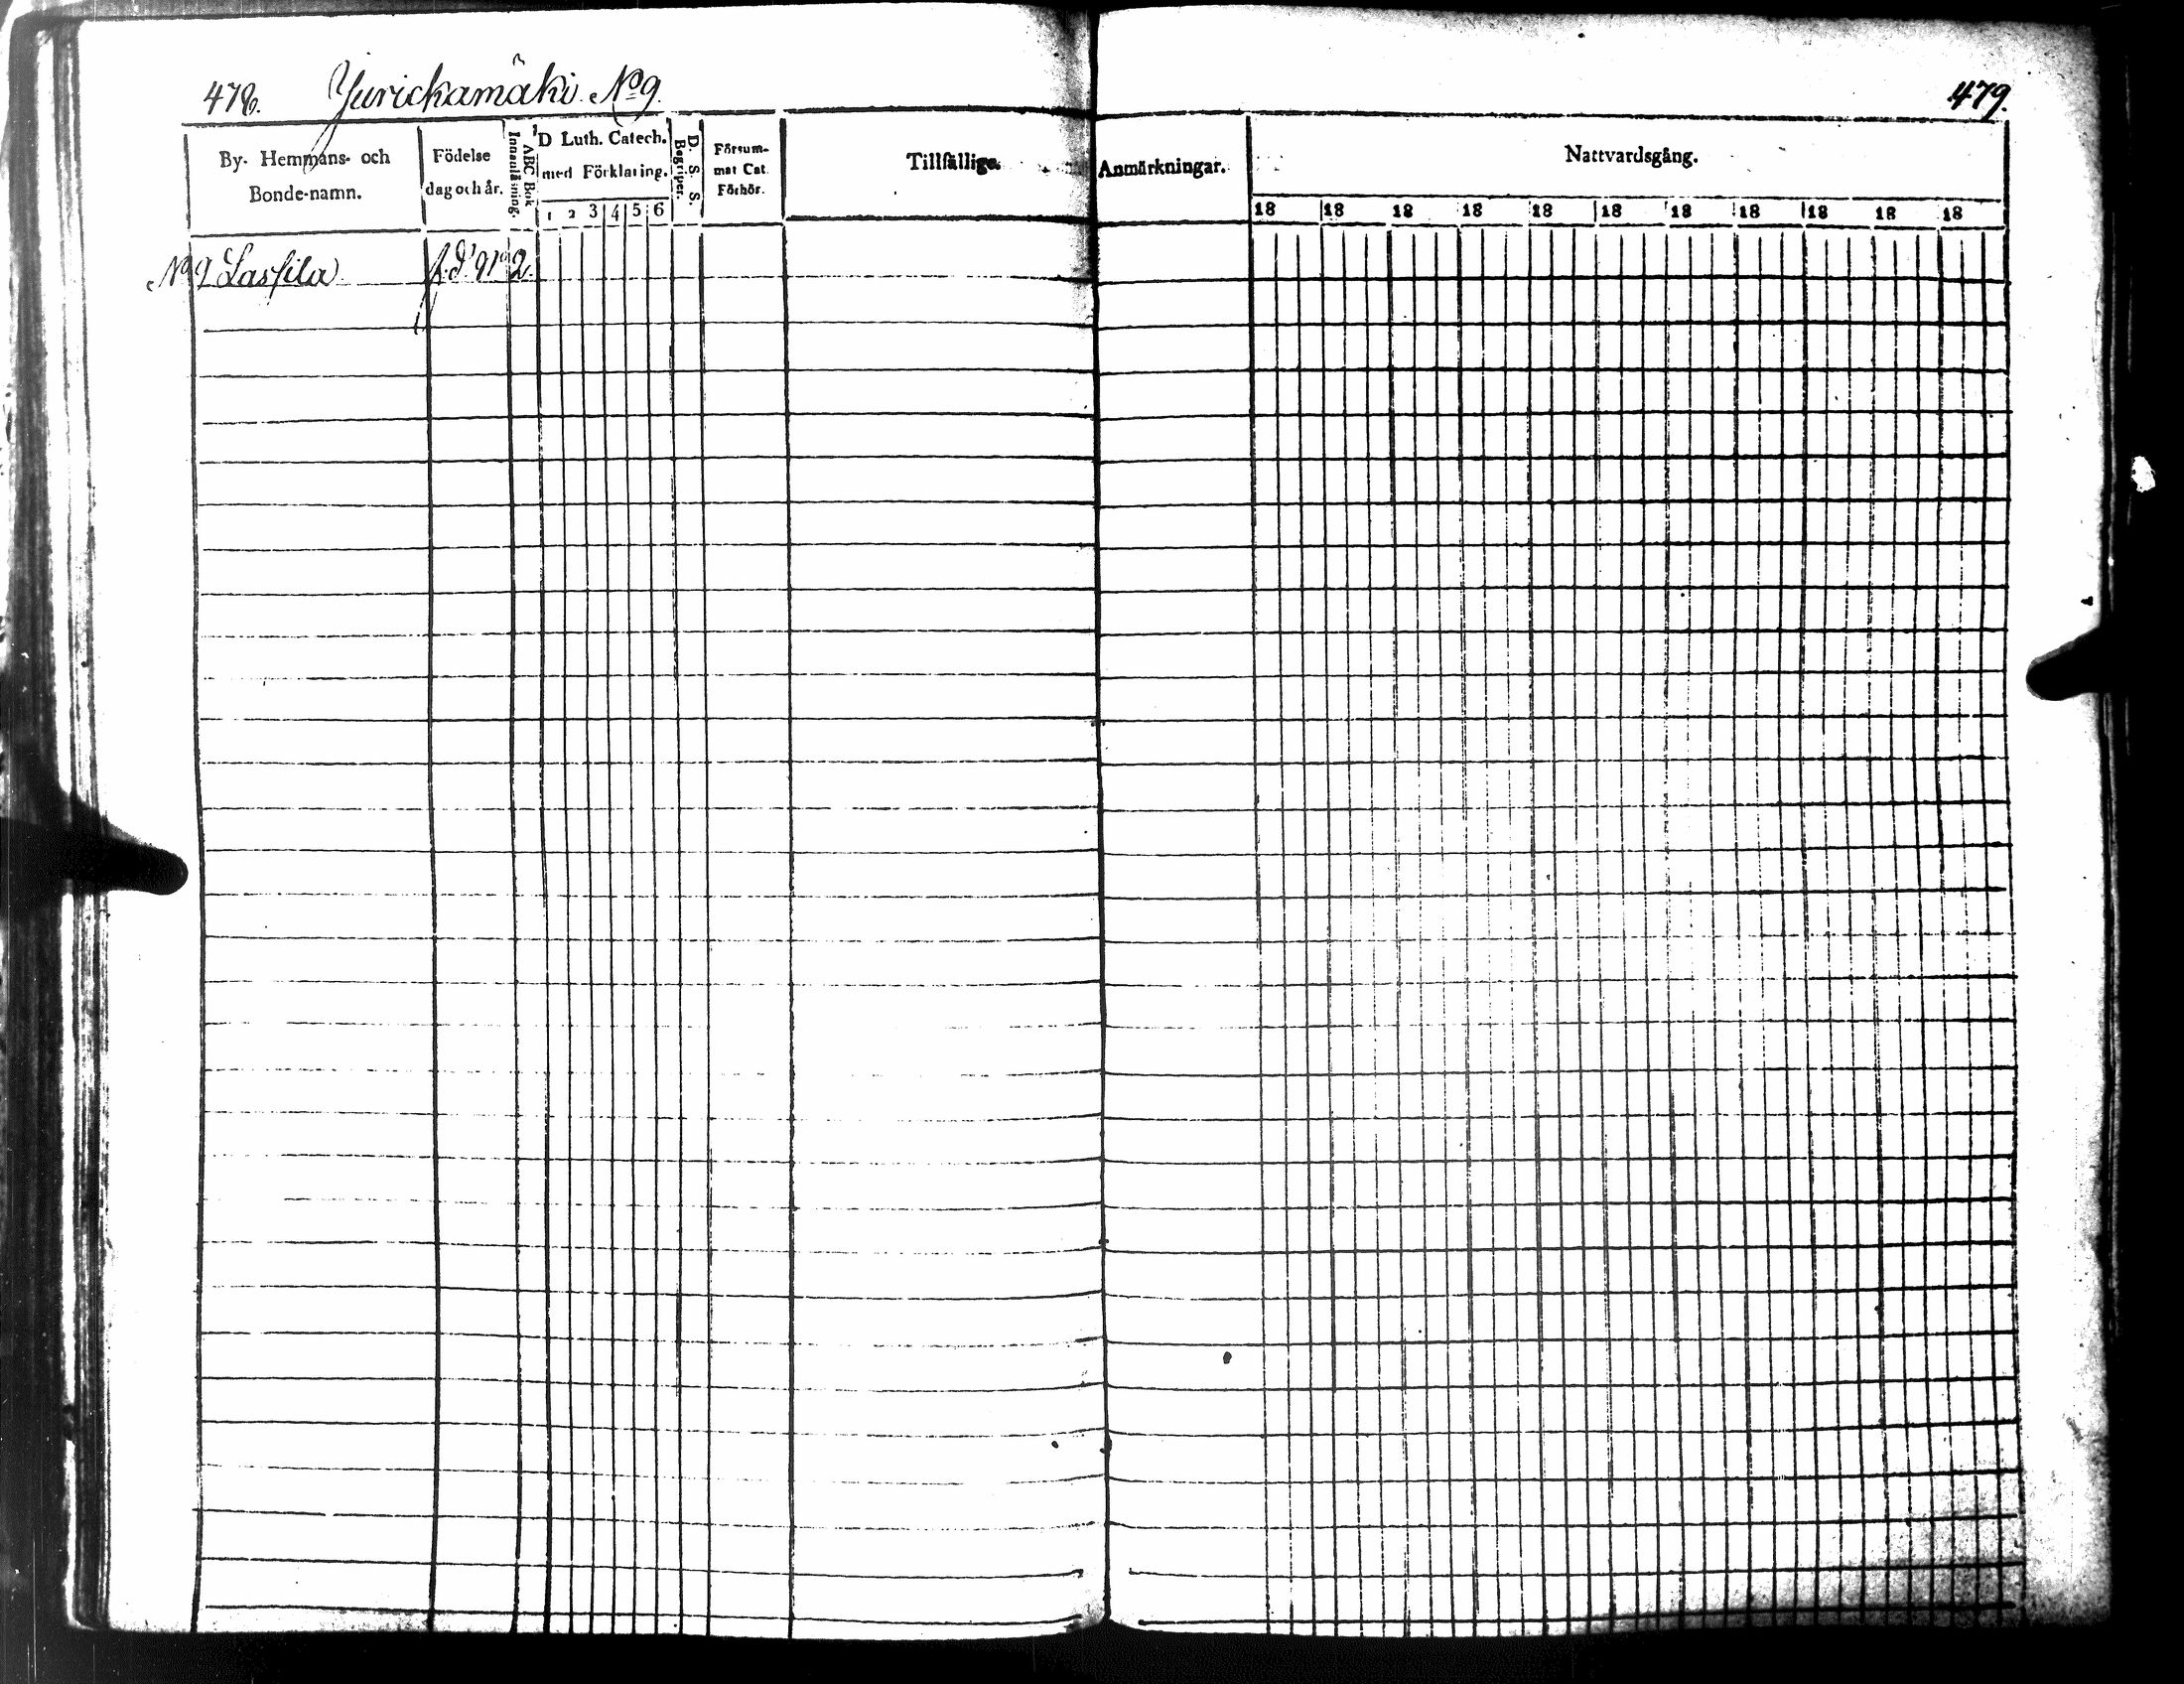 478. Jurickamäki No 9
479.
By- Hemmans- och Bonde-namn.
Födelse dag och år.
Innanläsning.
ABC Bok
D Luth. Catech. med Förklaring.
1 2 3 4 5 6
D. S. S. Begriper.
Försummat Cat. Förhör.
Tillfällige Anmärkningar.
Nattvardsgång.
18 18 18 18 18 18 18 18 18 18 18
No 9 Lassila f.d. No 2.